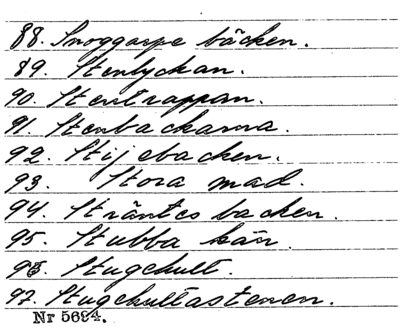 88. Snoggarpe bäcken.
89. Stenlyckan.
90. Stentrappan.
91. Stenbackarna.
92. Stijebacken.
93. Stora mad.
94. Sträntes backen.
95. Stubba kär.
96. Stugehult.
97. Stugehultastenen.
Nr 5694.